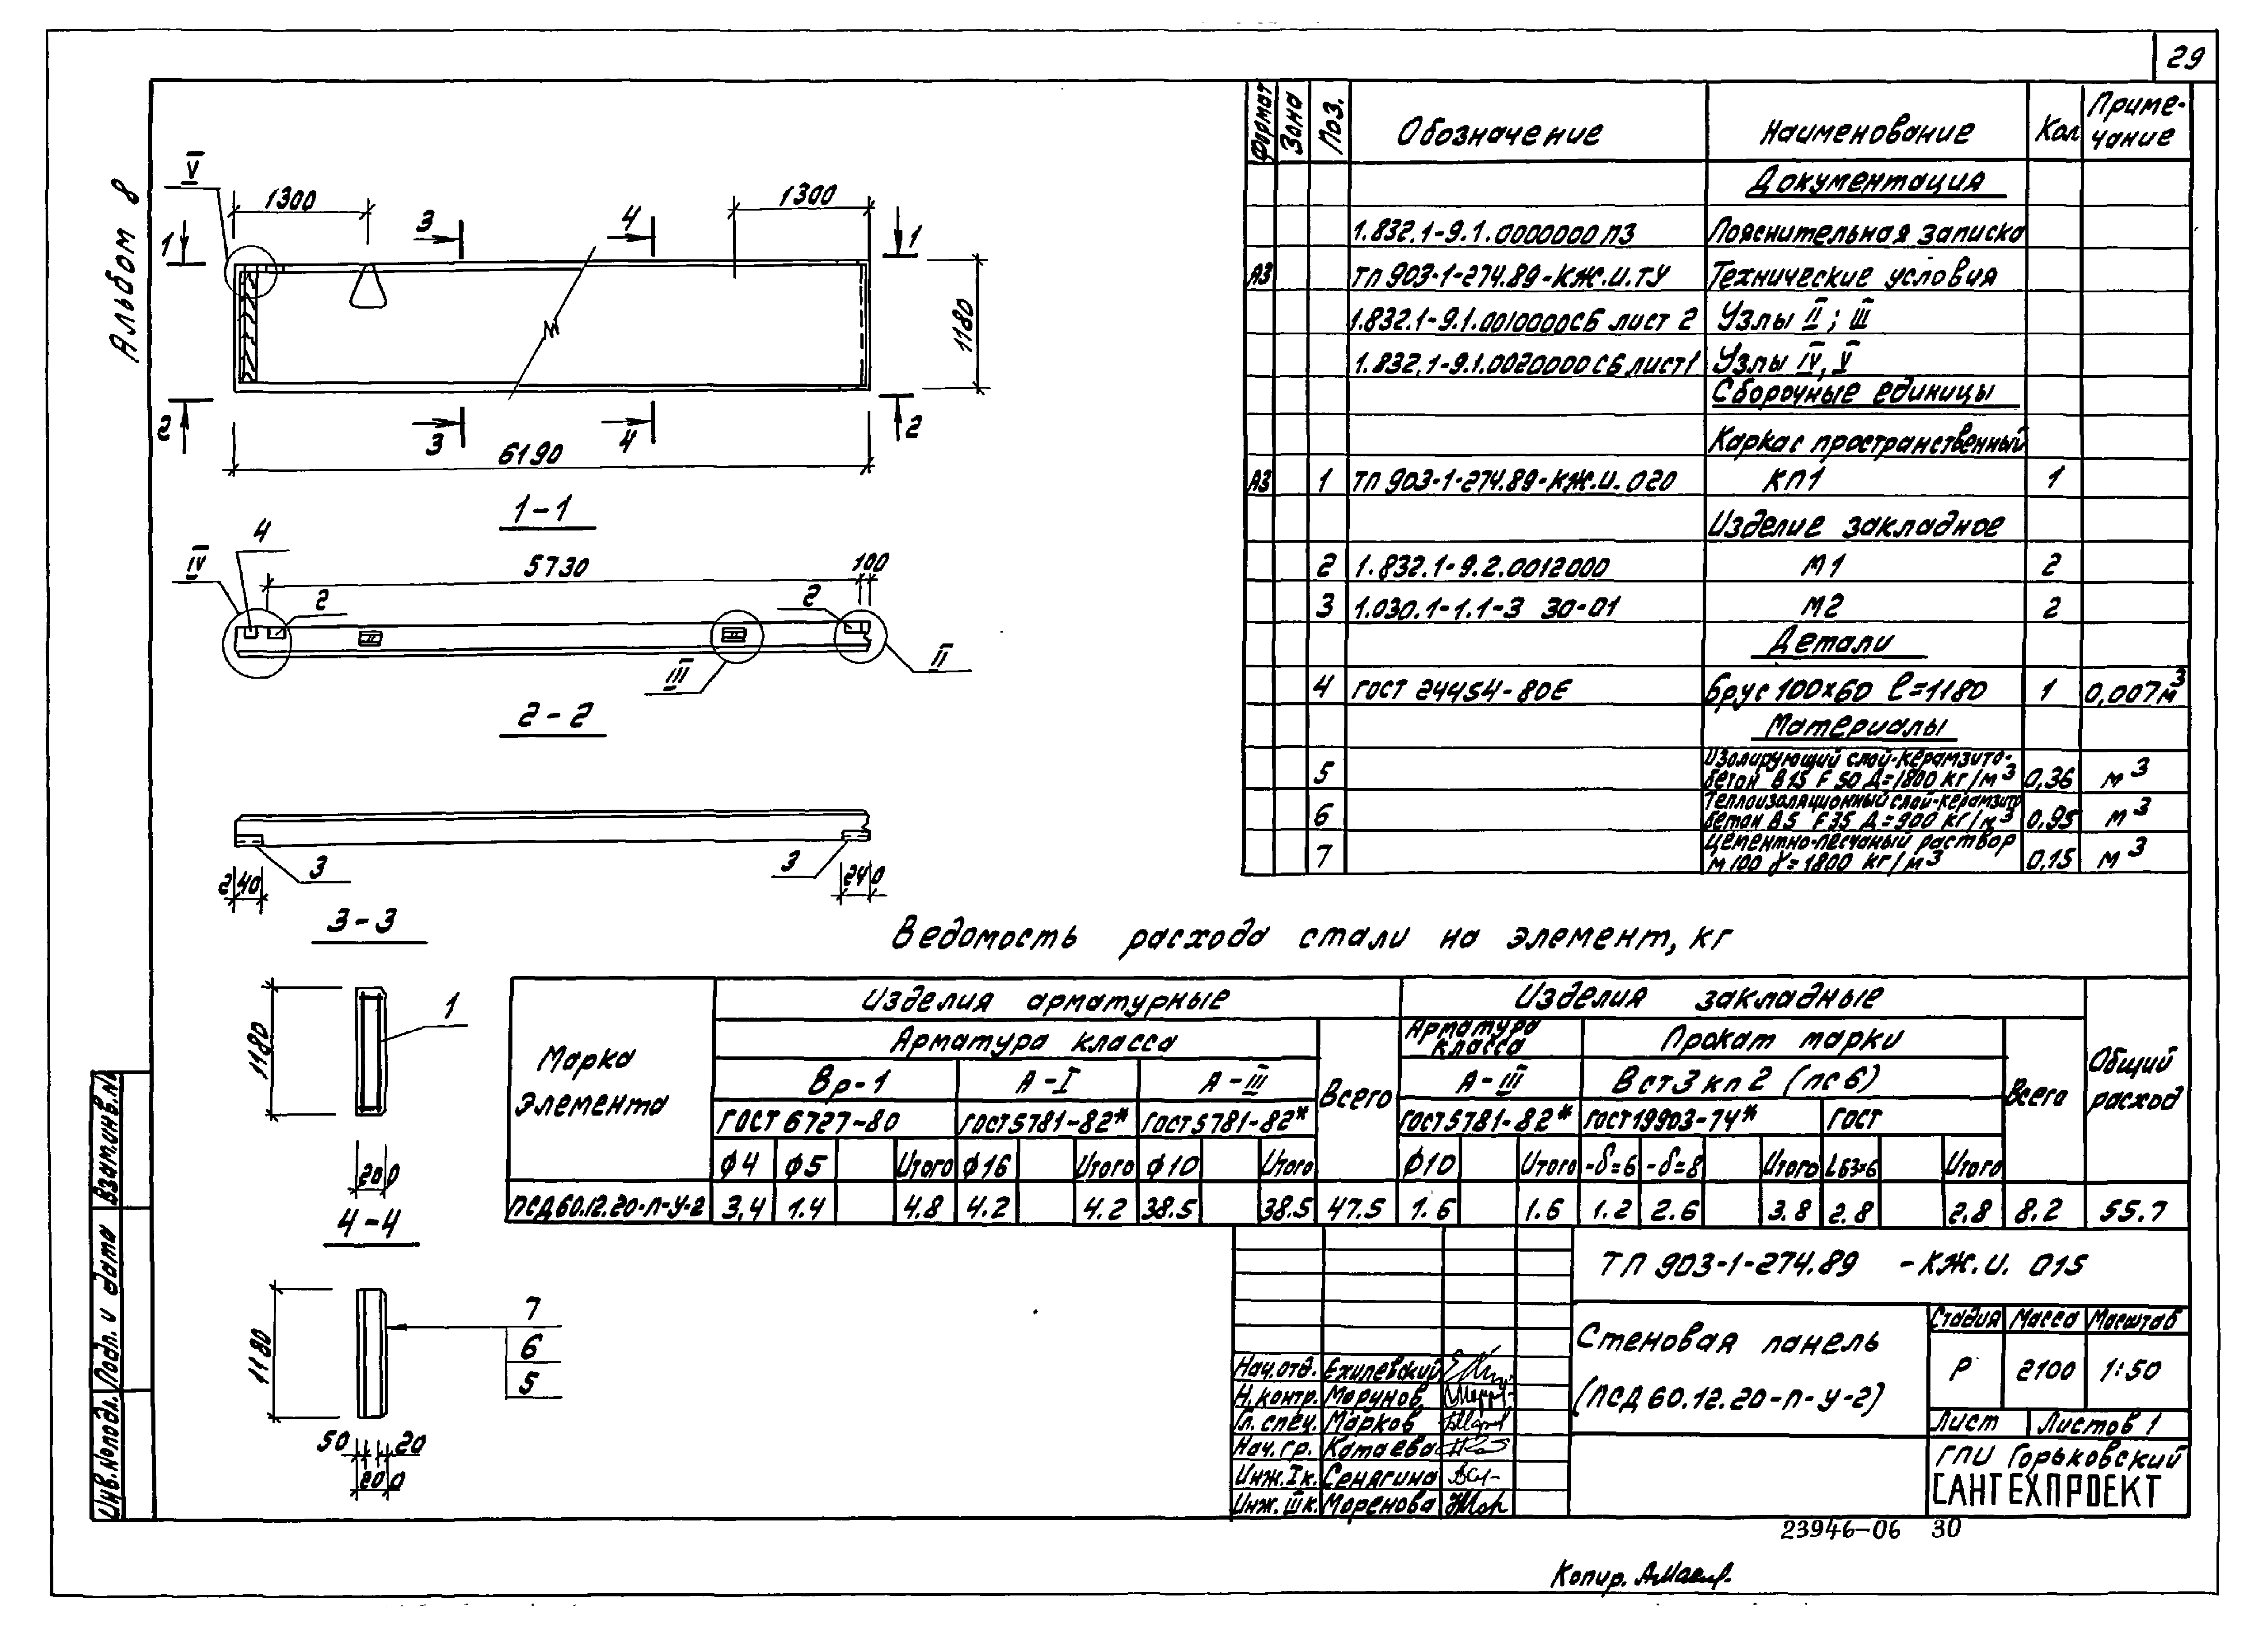 29
Альбом 8
V
1300
1300
3
4
1
1
1180
2
2
3
4
6190
1-1
4
IV
5730
100
2
2
III
II
2-2
3
3
240
240
3-3
1180
1
200
4-4
1180
7
6
5
50
20
200
Формат Зона Поз. Обозначение Наименование Кол Приме-
чание
Документация
1.832.1-9.1.0000000 ПЗ Пояснительная записка
А3 ТП 903-1-274.89-КЖ.И.ТУ Технические условия
1.832.1-9.1.0010000СБ лист 2 Узлы II; III
1.832.1-9.1.0020000СБ лист1 Узлы IV, V
Сборочные единицы
Каркас пространственный
А3 1 ТП 903-1-274.89-КЖ.И. 020 КП1 1
Изделие закладное
2 1.832.1-9.2.0012000 М1 2
3 1.030.1-1.1-3 30-01 М2 2
Детали
4 ГОСТ 24454-80Е Брус 100х60 ℓ=1180 1 0,007м³
Материалы
Изолирующий слой-керамзито-
5 бетон В15 F50 Д=1800 кг/м³ 0,36 м³
Теплоизоляционный слой-керамзито
6 бетон В5 F35 Д=900 кг/м³ 0,95 м³
Цементно-песчаный раствор
7 М100 γ=1800 кг/м³ 0,15 м³
Ведомость расхода стали на элемент, кг
Марка элемента Изделия арматурные Изделия закладные Общий расход
Арматура класса Всего Арматура класса Прокат марки Всего
Вр-1 А-I А-III А-III Вст3кп2 (пс6)
ГОСТ 6727-80 ГОСТ 5781-82* ГОСТ 5781-82* ГОСТ 5781-82* ГОСТ 19903-74* ГОСТ
ф4 ф5 Итого ф16 Итого ф10 Итого ф10 Итого -δ=6 -δ=8 Итого L63×6 Итого
ПСД60.12.20-П-У-2 3,4 1.4 4.8 4.2 4.2 38.5 38.5 47.5 1.6 1.6 1.2 2.6 3.8 2.8 2.8 8.2 55.7
ТП 903-1-274.89 -КЖ.И. 015
Стеновая панель
(ПСД 60.12.20-П-У-2)
Стадия Масса Масштаб
Р 2100 1:50
Лист Листов 1
ГПИ Горьковский
САНТЕХПРОЕКТ
Нач.отд. Ехилевский
Н.контр. Морунов
Гл.спец. Марков
Нач.гр. Катаева
Инж.Iк. Сенягина
Инж.IIIк. Моренова
Взам.инв.№
Подп. и дата
Инв.№подл.
23946-06 30
Копир.